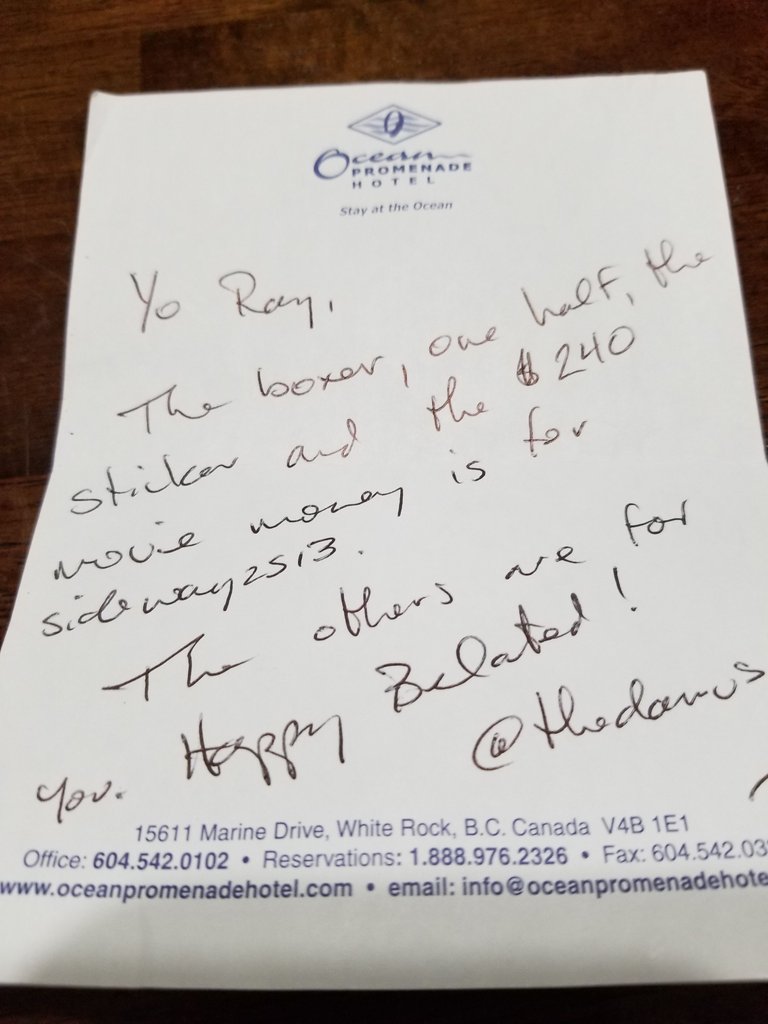 Ocean
PROMENADE
HOTEL
Stay at the Ocean
Yo Ray,
The boxer, one half, the
sticker and the $240
movie money is for
sideway2513.
The others are for
you. Happy Belated!
@thedarvus
15611 Marine Drive, White Rock, B.C. Canada V4B 1E1
Office: 604.542.0102 • Reservations: 1.888.976.2326 • Fax: 604.542.03
www.oceanpromenadehotel.com • email: info@oceanpromenadehote